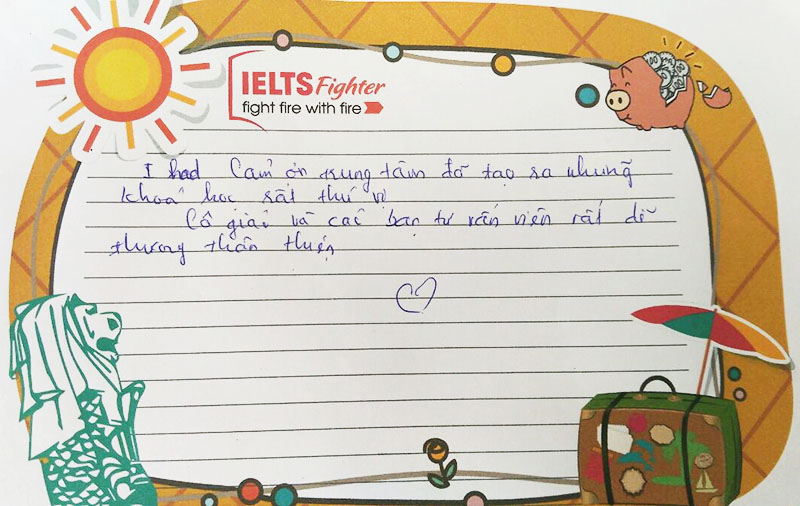 IELTS Fighter
fight fire with fire
I had Cảm ơn trung tâm đã tạo ra những
khoá học rất thú vị
Cô giải và các bạn tư vấn viên rất dễ
thương thân thiện